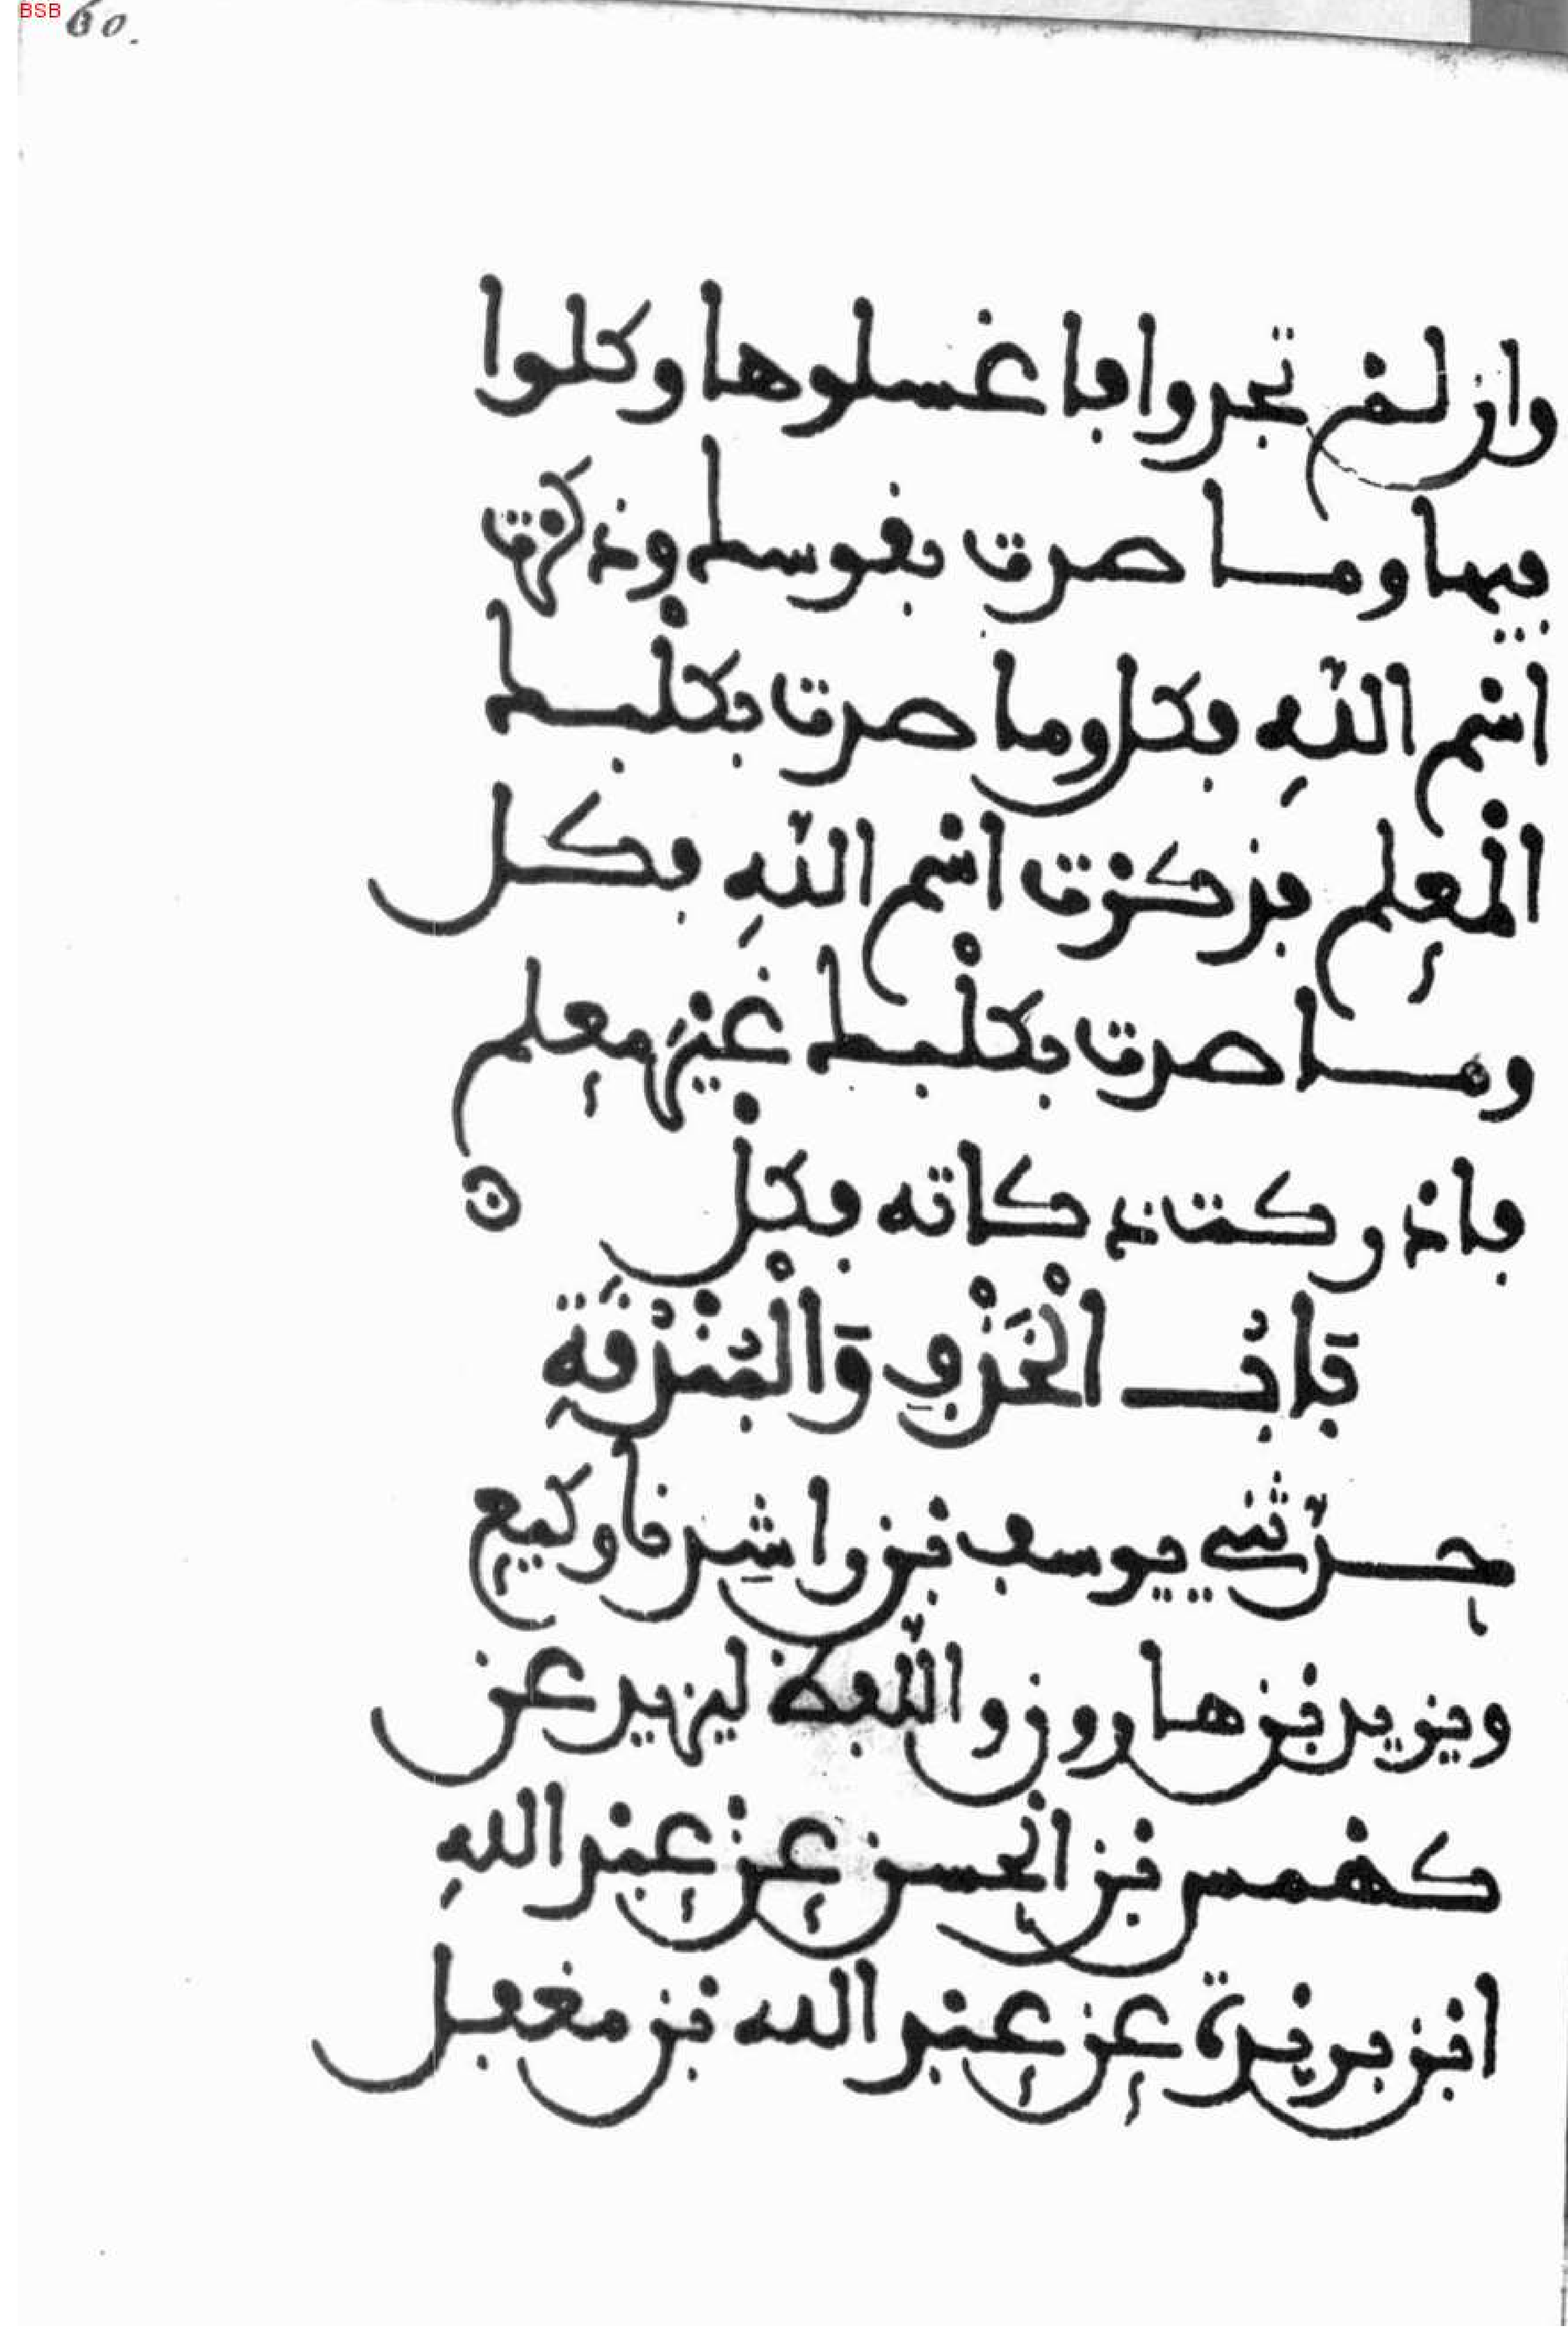 BSB
60.
وان لمْ تجدوا فاغسلوها وكلوا
فيها وما صدت بقوسط وذكرْت
اسْم اللّهِ فكل وما صدت بكلْبط
الْمعلم فذكرْت اسْم اللّهِ فكل
وما صدت بكلْبط غيْرَ معلم
فاذركت ذكاته فكلْ
بَابُ الْخَذْفِ وَالْبُنْدُقَةِ
حدّثني يوسف بْن راشِد نا وكيع
ويزيد بْن هارون واللّفظ ليزيد عن
كهْمس بْن الحسن عنْ عبْد اللهِ
ابْن بريْدة عن عبْد الله بْن مغفل